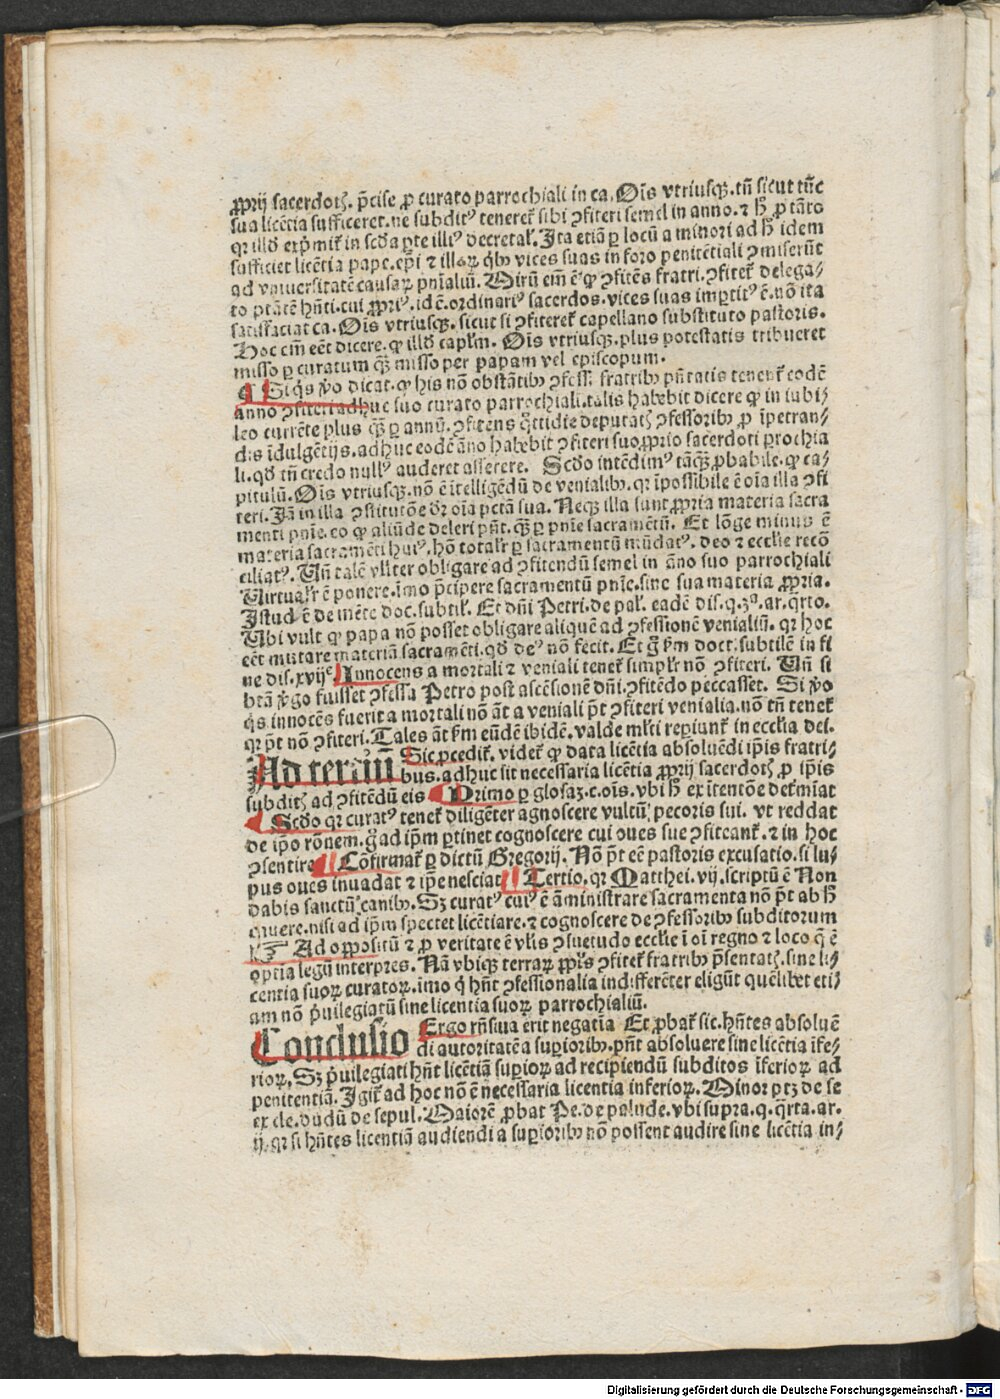 ꝓprij sacerdotꝭ. p̄cise ꝓ curato parrochiali in ca. Oīs vtriusqꝫ. tn̄ sicut tūc
sua licētia sufficeret. ne subditꝰ teneret᷑ sibi ꝯfiteri semel in anno. ⁊ h̄ ꝓ tāto
qꝛ illd̄ exp̄mit᷑ in scd̄a ꝑte illiꝰ decretal᷑. Ita etiā ꝑ locū a minori ad h̄ idem
sufficiet licētia pape. ep̄i ⁊ illoꝝ qͥbꝰ vices suas in foro penitētiali ꝯmiserūt
ad vniuersitatē causaꝝ pn̄ialiū. Mirū em̄ ē ꝙ ꝯfitēs fratri. ꝯfitet᷑ delega⸗
to ptātē hn̄ti. cui ꝓpriꝰ. idē. ordinariꝰ sacerdos. vices suas imꝑtitꝰ ē. nō ita
satisfaciat ca. Oīs vtriusqꝫ. sicut si ꝯfiteret᷑ capellano substituto pastoris.
Hoc em̄ eēt dicere. ꝙ illd̄ capl̄m. Oīs vtriusqꝫ. plus potestatis tribueret
misso ꝑ curatum qꝫ̄ misso per papam vel episcopum.
¶ Si qͥs v̄o dicat. ꝙ his nō obstātibꝰ ꝯfessi fratribꝰ pn̄tatis tenent᷑ eodē
anno ꝯfiteri adhuc suo curato parrochiali. talis habebit dicere ꝙ in iubi⸗
leo currēte plus qꝫ̄ ꝑ annū. ꝯfitens qͣttidie deputatꝭ ꝯfessoribꝰ ꝓ īpetran⸗
dis īdulgētijs. adhuc eodē āno habebit ꝯfiteri suo ꝓprio sacerdoti ꝑrochia
li. qd̄ tn̄ credo nullꝰ auderet asserere. Scd̄o intēdimꝰ tāqꝫ̄ ꝓbabile. ꝙ ca⸗
pitulū. Oīs vtriusqꝫ. nō ē ītelligēdū de venialibꝰ. qꝛ īpossibile ē oīa illa ꝯfi
teri. Jā in illa ꝯstitutōe dr̄ oīa pctā sua. Neqꝫ illa sunt ꝓpria materia sacra
menti pnīe. eo ꝙ aliūde deleri pn̄t. qꝫ̄ ꝑ pnīe sacramētū. Et lōge minus ē
materia sacramēti huiꝰ. hō totalr̄ ꝑ sacramentū mūdatꝰ. deo ⁊ ecclīe recō
ciliatꝰ. Vn̄ talē vl̄iter obligare ad ꝯfitendū semel in āno suo parrochiali
Virtualr̄ ē ponere. imo p̄cipere sacramentū pnīe. sine sua materia ꝓpria.
Istud ē de mēte doc. subtil᷑. Et dn̄i Petri. de pal᷑. eadē dis. q. 3ª. ar. qͣrto.
Ubi vult ꝙ papa nō posset obligare aliquē ad ꝯfessionē venialiū. qꝛ hoc
eēt mutare materiā sacramēti. qd̄ deꝰ nō fecit. Et ḡ ẜm doct. subtilē in fi
ne dis. xvijͤ Innocens a mortali ⁊ veniali tenet᷑ simplr̄ nō ꝯfiteri. Vn̄ si
btā v̄go fuisset ꝯfessa Petro post ascēsionē dn̄i. ꝯfitēdo peccasset. Si v̄o
qͥs innocēs fuerit a mortali nō āt a veniali pt̄ ꝯfiteri venialia. nō tn̄ tenet᷑
qꝛ pt̄ nō ꝯfiteri. Tales āt ẜm eūdē ibidē. valde ml̄ti reꝑiunt᷑ in ecclīa dei.
Ad terciū Sic ꝓcedit᷑. videt᷑ ꝙ data licētia absoluēdi ip̄is fratri⸗
bus. adhuc sit necessaria licētia ꝓprij sacerdotꝭ ꝓ ip̄is
subditꝭ ad ꝯfitēdū eis ¶ Primo ꝑ glosaꝫ. c. oīs. vbi h̄ ex itentōe det᷑mīat
¶ Scd̄o qꝛ curatꝰ tenet᷑ diligēter agnoscere vultū pecoris sui. vt reddat
de ip̄o rōnem. ḡ ad ip̄m ꝑtinet cognoscere cui oues sue ꝯfiteant᷑. ⁊ in hoc
ꝯsentire ¶ Cōfirmat᷑ ꝑ dictū Gregorij. Nō pt̄ eē pastoris excusatio. si lu⸗
pus oues inuadat ⁊ ip̄e nesciat ¶ Tertio. qꝛ Matthei. vij. scriptū ē Non
dabis sanctū canibꝰ. Sꝫ curatꝰ cuiꝰ ē āministrare sacramenta nō pt̄ ab h̄
quere. nisi ad ip̄m spectet licētiare. ⁊ cognoscere de ꝯfessoribꝰ subditorum
☞ Ad oppositū ⁊ ꝓ veritate ē vl̄is ꝯsuetudo ecclīe ī oī regno ⁊ loco q̄ ē
optīa legū interpres. Nā vbiqꝫ terraꝝ ppl̄s ꝯfitet᷑ fratribꝰ p̄sentatꝭ. sine li⸗
centia suoꝝ curatoꝝ. imo qͥ hn̄t ꝯfessionalia indifferēter eligūt quēlibet eti⸗
am nō pͥuilegiatū sine licentia suoꝝ parrochialiū.
Conclusio Ergo rn̄siua erit negatīa Et ꝓbat᷑ sic. hn̄tes absoluē
di autoritatē a suꝑioribꝰ. pn̄t absoluere sine licētia īfe⸗
rioꝝ, Sꝫ pͥuilegiati hn̄t licētiā suꝑioꝝ ad recipiendū subditos īferioꝝ ad
penitentiā. Igit᷑ ad hoc nō ē necessaria licentia inferioꝝ. Minor ptꝫ de se
ex cle. dudū de sepul. Maiorē ꝓbat Pe. de palude. vbi supra. q. qͣrta. ar.
ij. qꝛ si hn̄tes licentiā audiendi a suꝑioribꝰ nō possent audire sine licētia in⸗
Digitalisierung gefördert durch die Deutsche Forschungsgemeinschaft - DFG